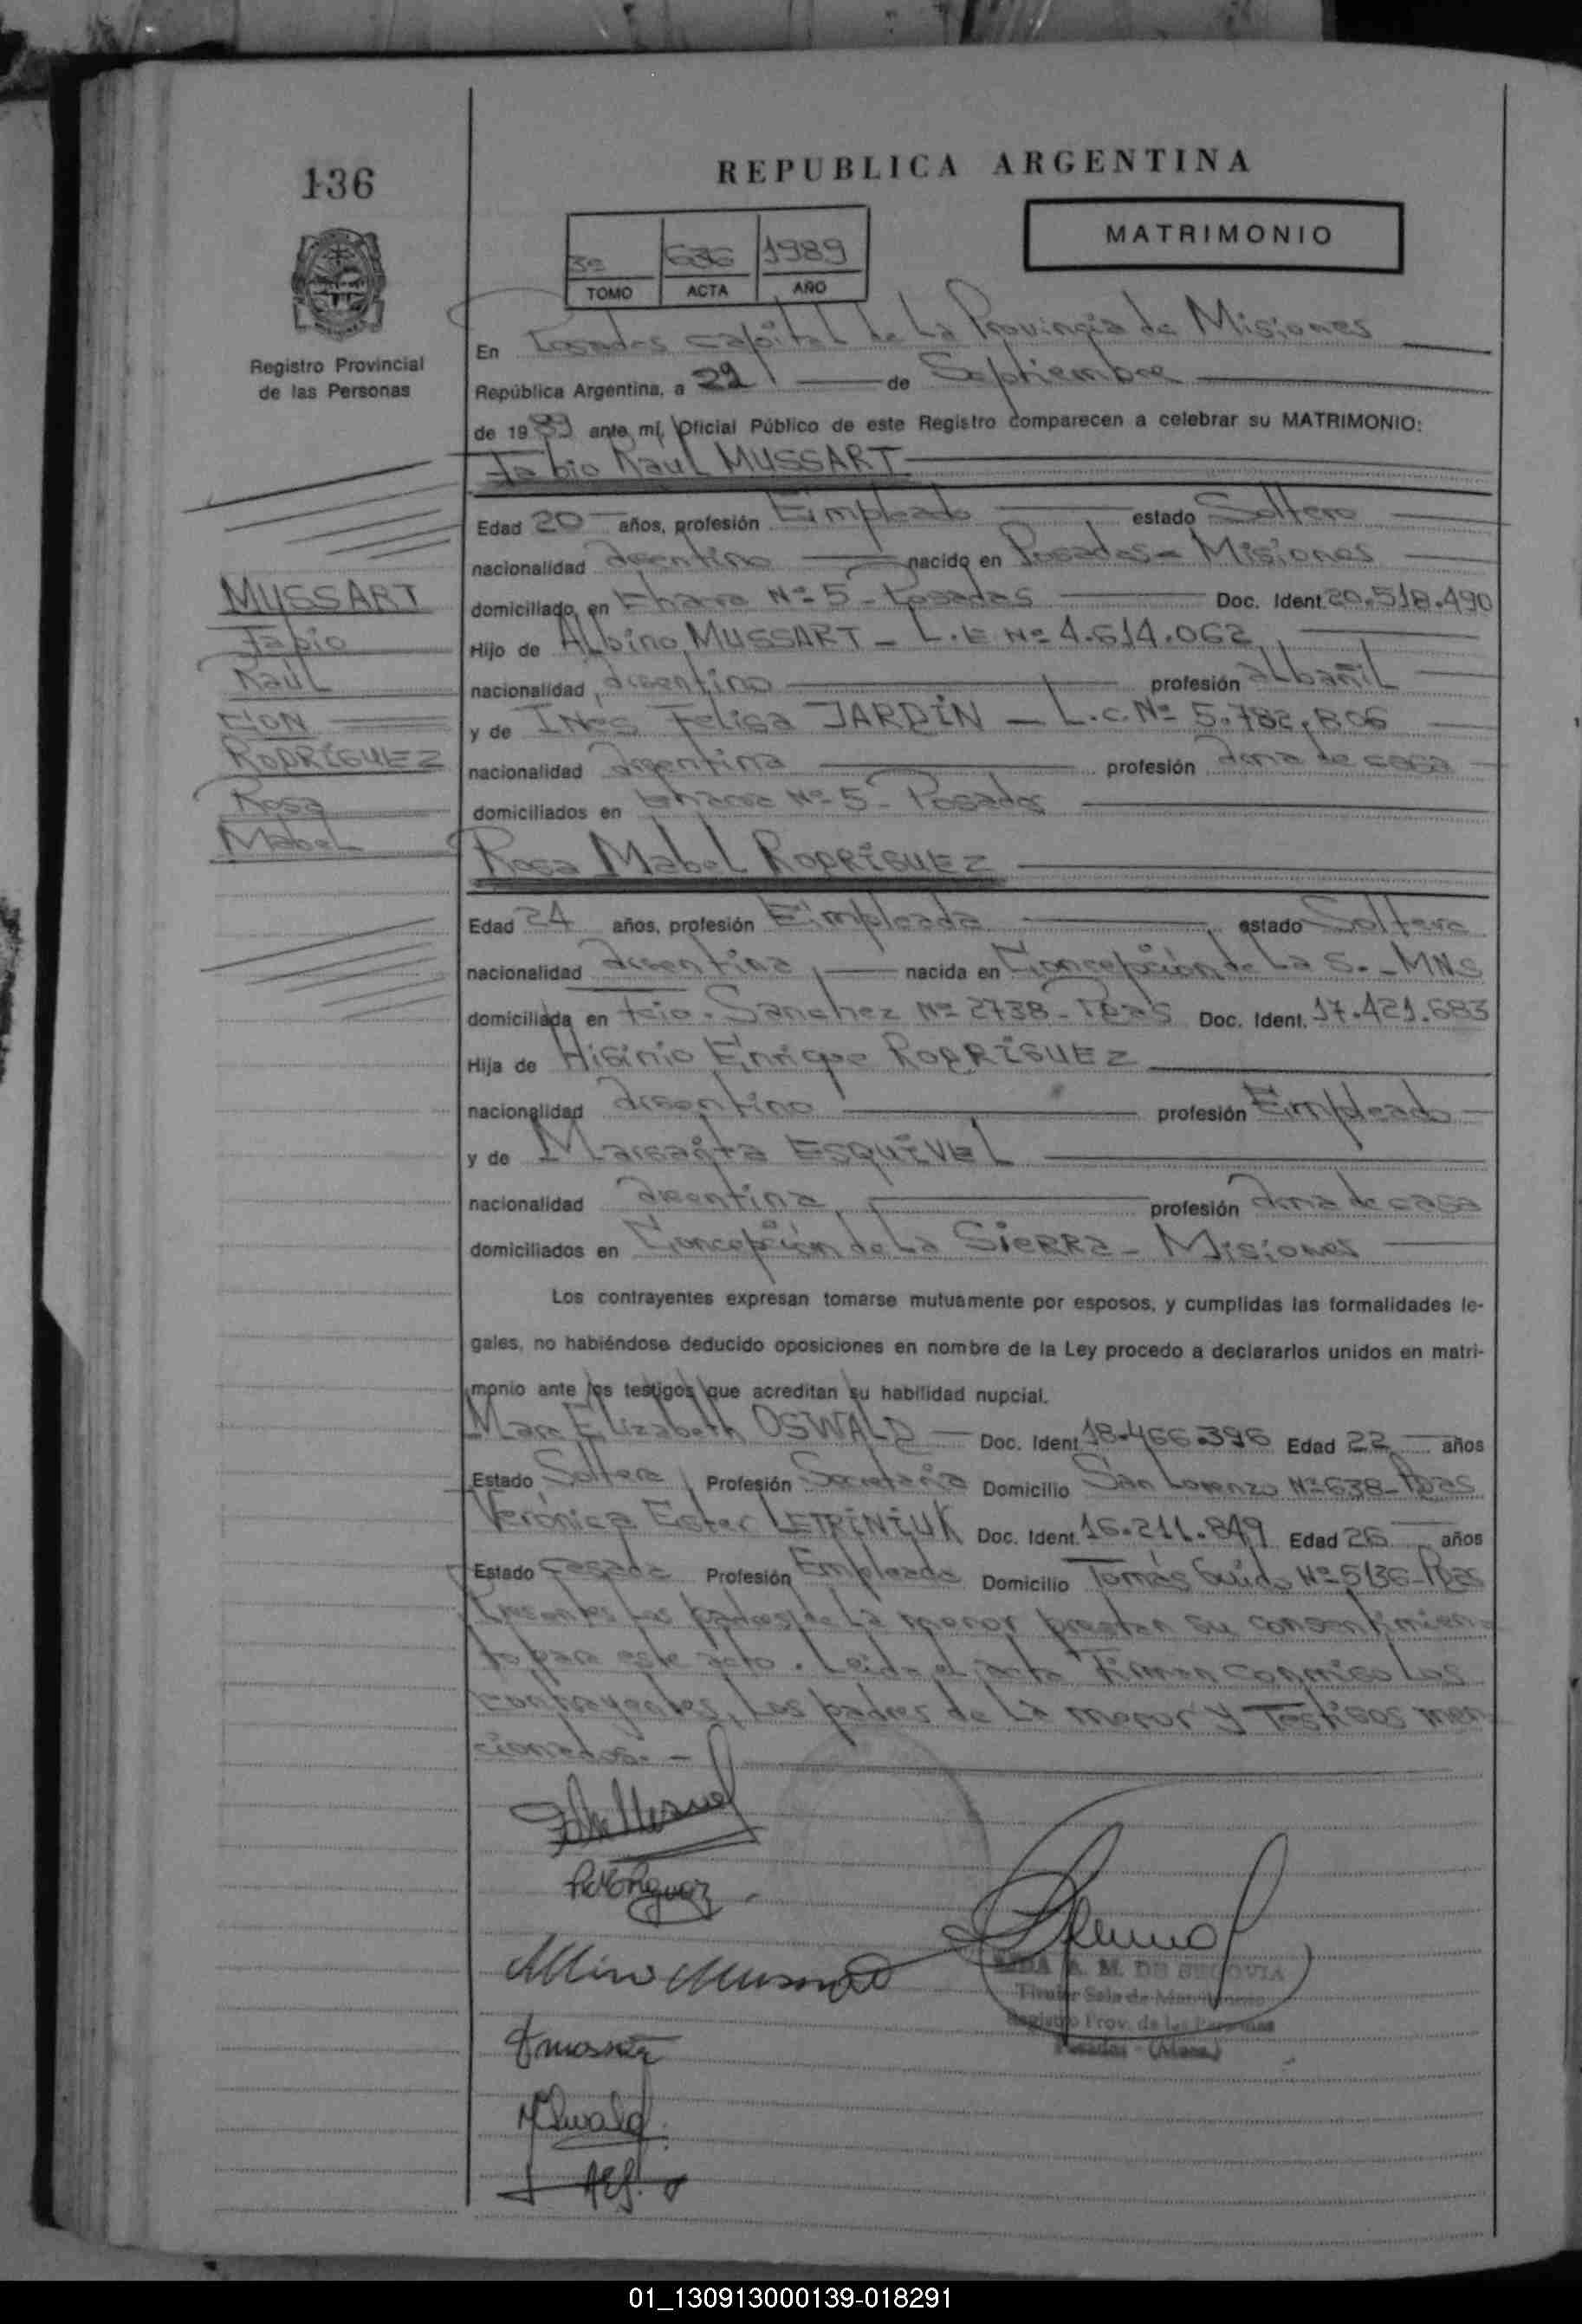 136
REPUBLICA ARGENTINA
MATRIMONIO
3º 636 1989
TOMO ACTA AÑO
Registro Provincial
de las Personas
En Posadas capital de La Provincia de Misiones
República Argentina, a 29 de Septiembre
de 1989 ante mí, Oficial Público de este Registro comparecen a celebrar su MATRIMONIO:
Fabio Raul MUSSART
Edad 20 años, profesión Empleado estado Soltero
nacionalidad argentino nacido en Posadas - Misiones
domiciliado en Chacra Nº 5 - Posadas Doc. Ident. 20.518.490
Hijo de Albino MUSSART - L.E. Nº 4.614.062
nacionalidad argentino profesión albañil
y de INes Felisa JARDIN - L.C. Nº 5.782.806
nacionalidad argentina profesión ama de casa
domiciliados en chacra Nº 5 - Posadas
MUSSART
Fabio
Raul
CON
RODRIGUEZ
Rosa
Mabel
Rosa Mabel RODRIGUEZ
Edad 24 años, profesión Empleada estado Soltera
nacionalidad argentina nacida en Concepción de La S. - MNS
domiciliada en Fcio. Sanchez Nº 2738 - Pdas Doc. Ident. 17.421.683
Hija de Higinio Enrique RODRIGUEZ
nacionalidad argentino profesión Empleado
y de Margarita ESQUIVEL
nacionalidad argentina profesión ama de casa
domiciliados en Concepción de La SIERRA - Misiones
Los contrayentes expresan tomarse mutuamente por esposos, y cumplidas las formalidades le-
gales, no habiéndose deducido oposiciones en nombre de la Ley procedo a declararlos unidos en matri-
monio ante los testigos que acreditan su habilidad nupcial.
Mara Elizabeth OSWALD Doc. Ident. 18.466.396 Edad 22 años
Estado Soltera Profesión Secretaria Domicilio San Lorenzo Nº 638 - Pdas
Verónica Ester LETRINIUK Doc. Ident. 16.211.849 Edad 26 años
Estado casada Profesión Empleada Domicilio Tomás Guido Nº 5136 - Pdas
Presentes Los padres de La menor prestan su consentimien-
to para este acto. Leida el acta Firman conmigo Los
contrayentes, Los padres de La menor y Testigos men-
cionados. -
RODRIGUEZ
Albino Mussart
MOswald
A. M. DE SEGOVIA
Titular Sala de Matrimonio
Registro Prov. de las Personas
Posadas - (Mnes.)
01_130913000139-018291